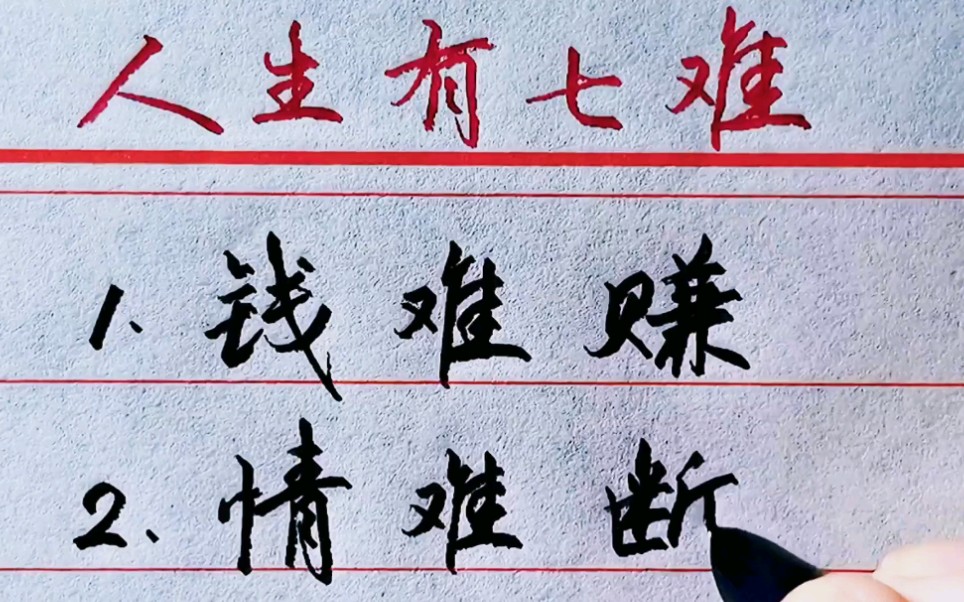 人生有七难
1、钱难赚
2、情难断